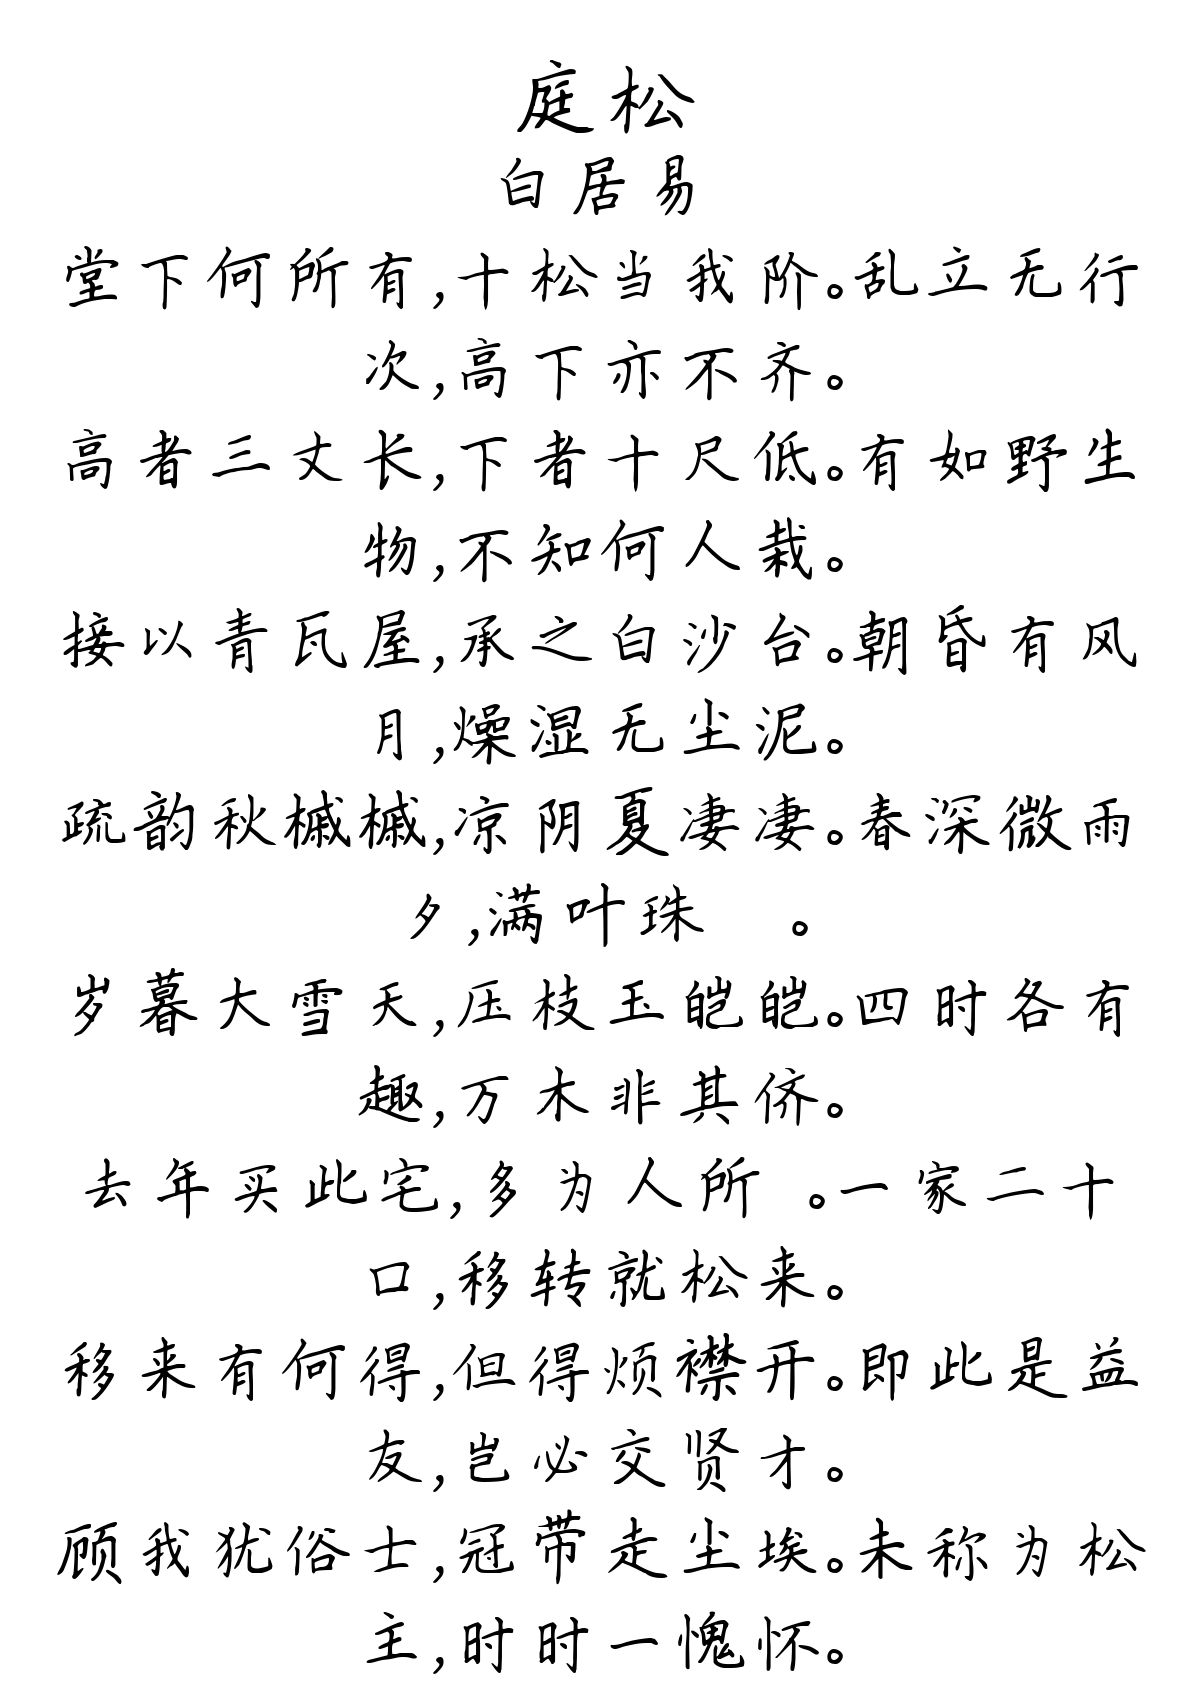 庭松
白居易
堂下何所有,十松当我阶。乱立无行
次,高下亦不齐。
高者三丈长,下者十尺低。有如野生
物,不知何人栽。
接以青瓦屋,承之白沙台。朝昏有风
月,燥湿无尘泥。
疏韵秋槭槭,凉阴夏凄凄。春深微雨
夕,满叶珠 。
岁暮大雪天,压枝玉皑皑。四时各有
趣,万木非其侪。
去年买此宅,多为人所 。一家二十
口,移转就松来。
移来有何得,但得烦襟开。即此是益
友,岂必交贤才。
顾我犹俗士,冠带走尘埃。未称为松
主,时时一愧怀。